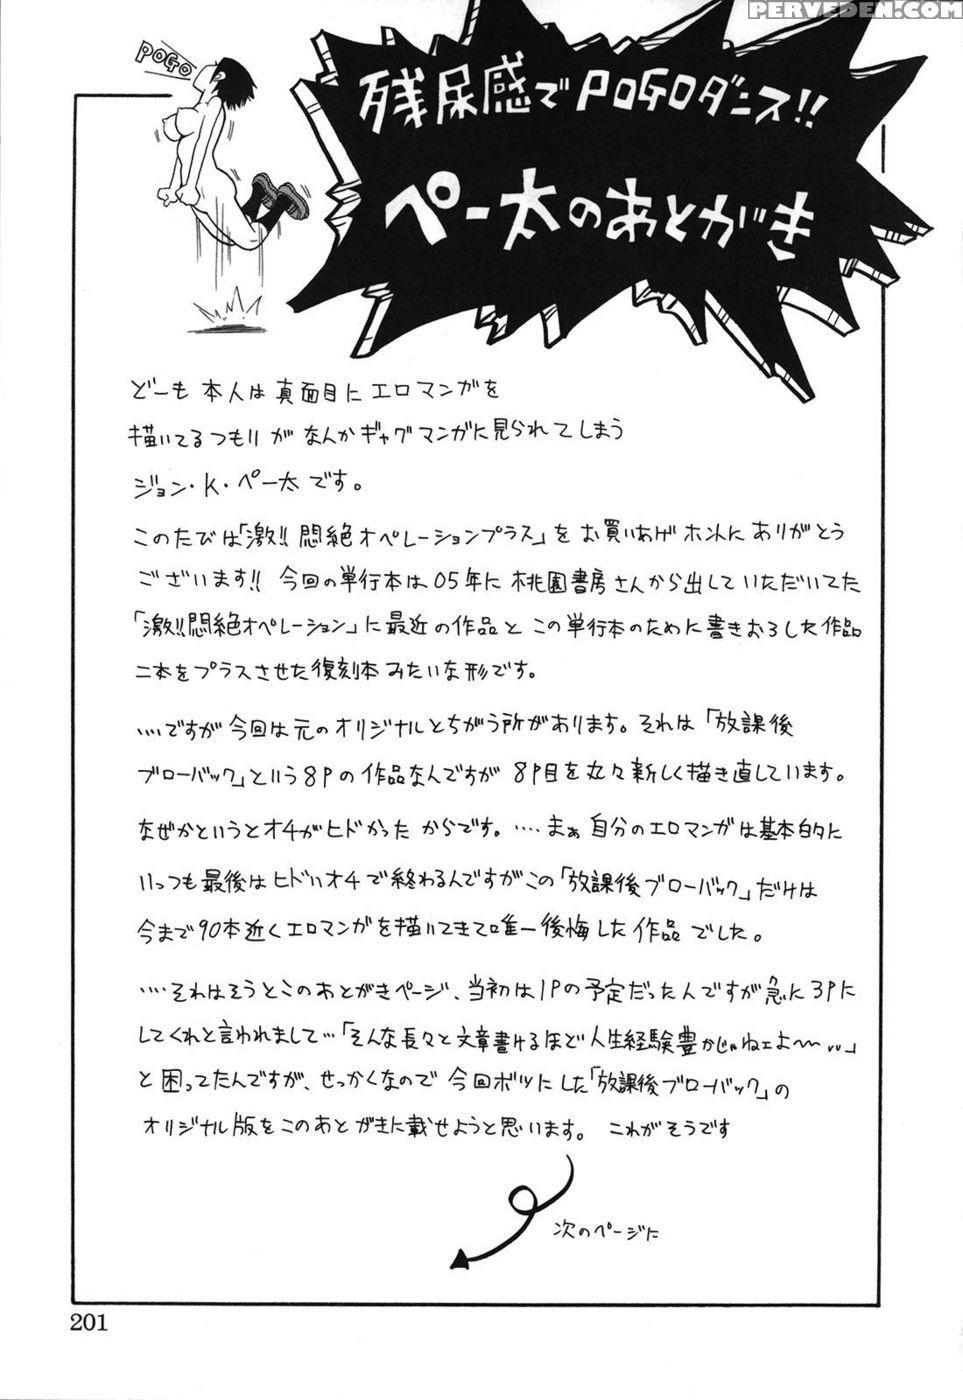 PERVEDEN.COM
POGO
残尿感でPOGOダンス!!
ペー太のあとがき
どーも 本人は真面目にエロマンガを
描いてるつもりが なんかギャグマンガに見られてしまう
ジョン・K・ペー太です。
このたびは「激!!悶絶オペレーションプラス」をお買いあげホントにありがとう
ございます!! 今回の単行本は05年に桃園書房さんから出していただいてた
「激!!悶絶オペレーション」に最近の作品とこの単行本のために書きおろした作品
二本をプラスさせた復刻本みたいな形です。
....ですが今回は元のオリジナルとちがう所があります。それは「放課後
ブローバック」という8Pの作品なんですが 8P目を丸々新しく描き直しています。
なぜかというとオチがヒドかったからです。....まぁ自分のエロマンガは基本的に
いっつも最後はヒドいオチで終わるんですがこの「放課後ブローバック」だけは
今まで90本近くエロマンガを描いてきて唯一後悔した作品でした。
....それはそうとこのあとがきページ、当初は1Pの予定だったんですが急に3Pに
してくれと言われまして...「そんな長々と文章書けるほど人生経験豊かじゃねェよ〜〜..」
と困ってたんですが、せっかくなので今回ボツにした「放課後ブローバック」の
オリジナル版をこのあとがきに載せようと思います。 これがそうです
次のページに
201